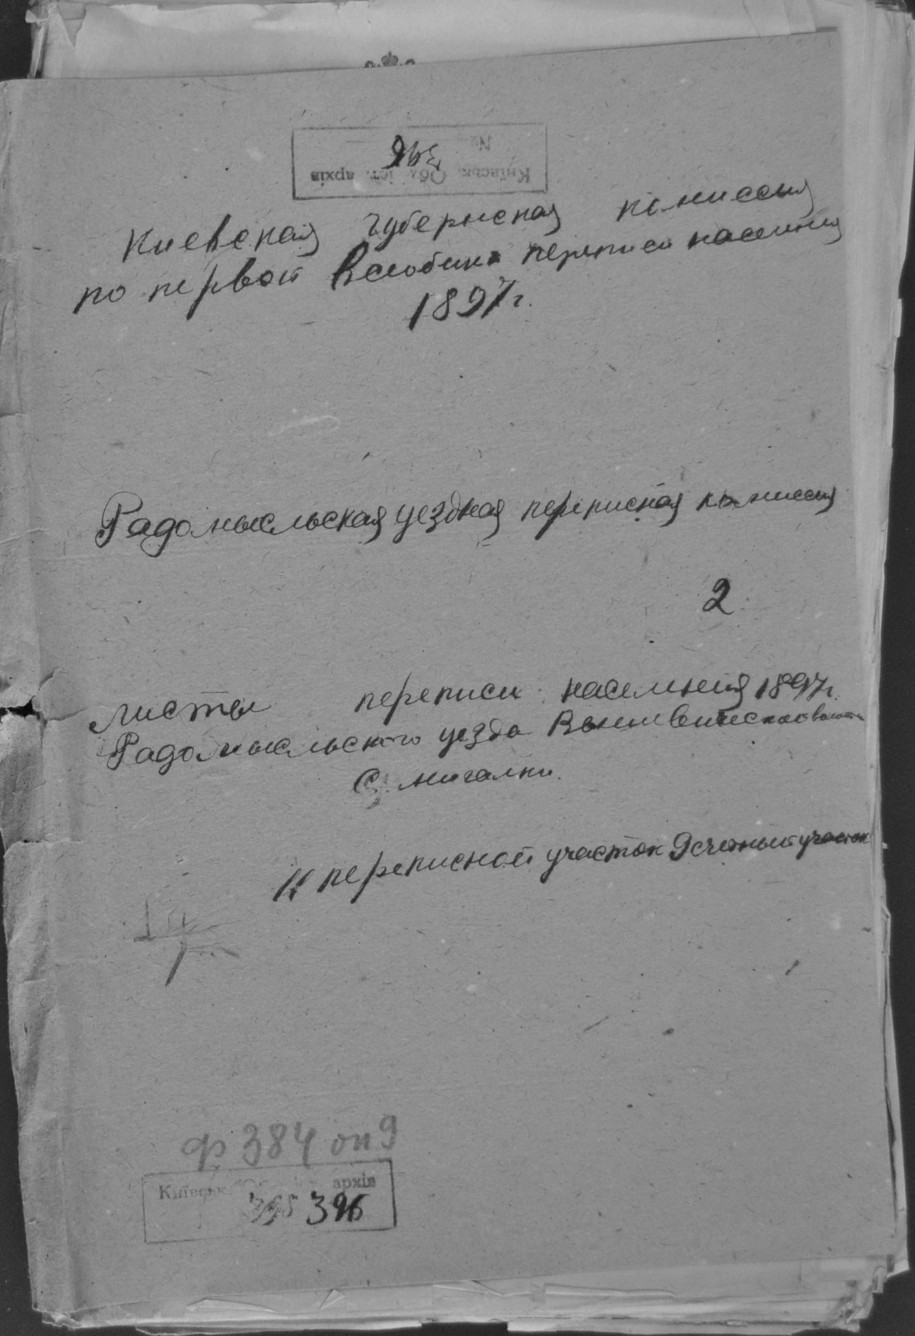 №
Київськ. Обл. іст. архів
Киевская губернская комиссия
по первой Всеобщей переписи населения
1897г.
Радомысльская уездная переписная комиссия
2
Листы переписи населения 1897г.
Радомысльского уезда
с. Мигалки
11 переписной участок 9 счетный участок
ф 384 оп 9
Київськ архів
396